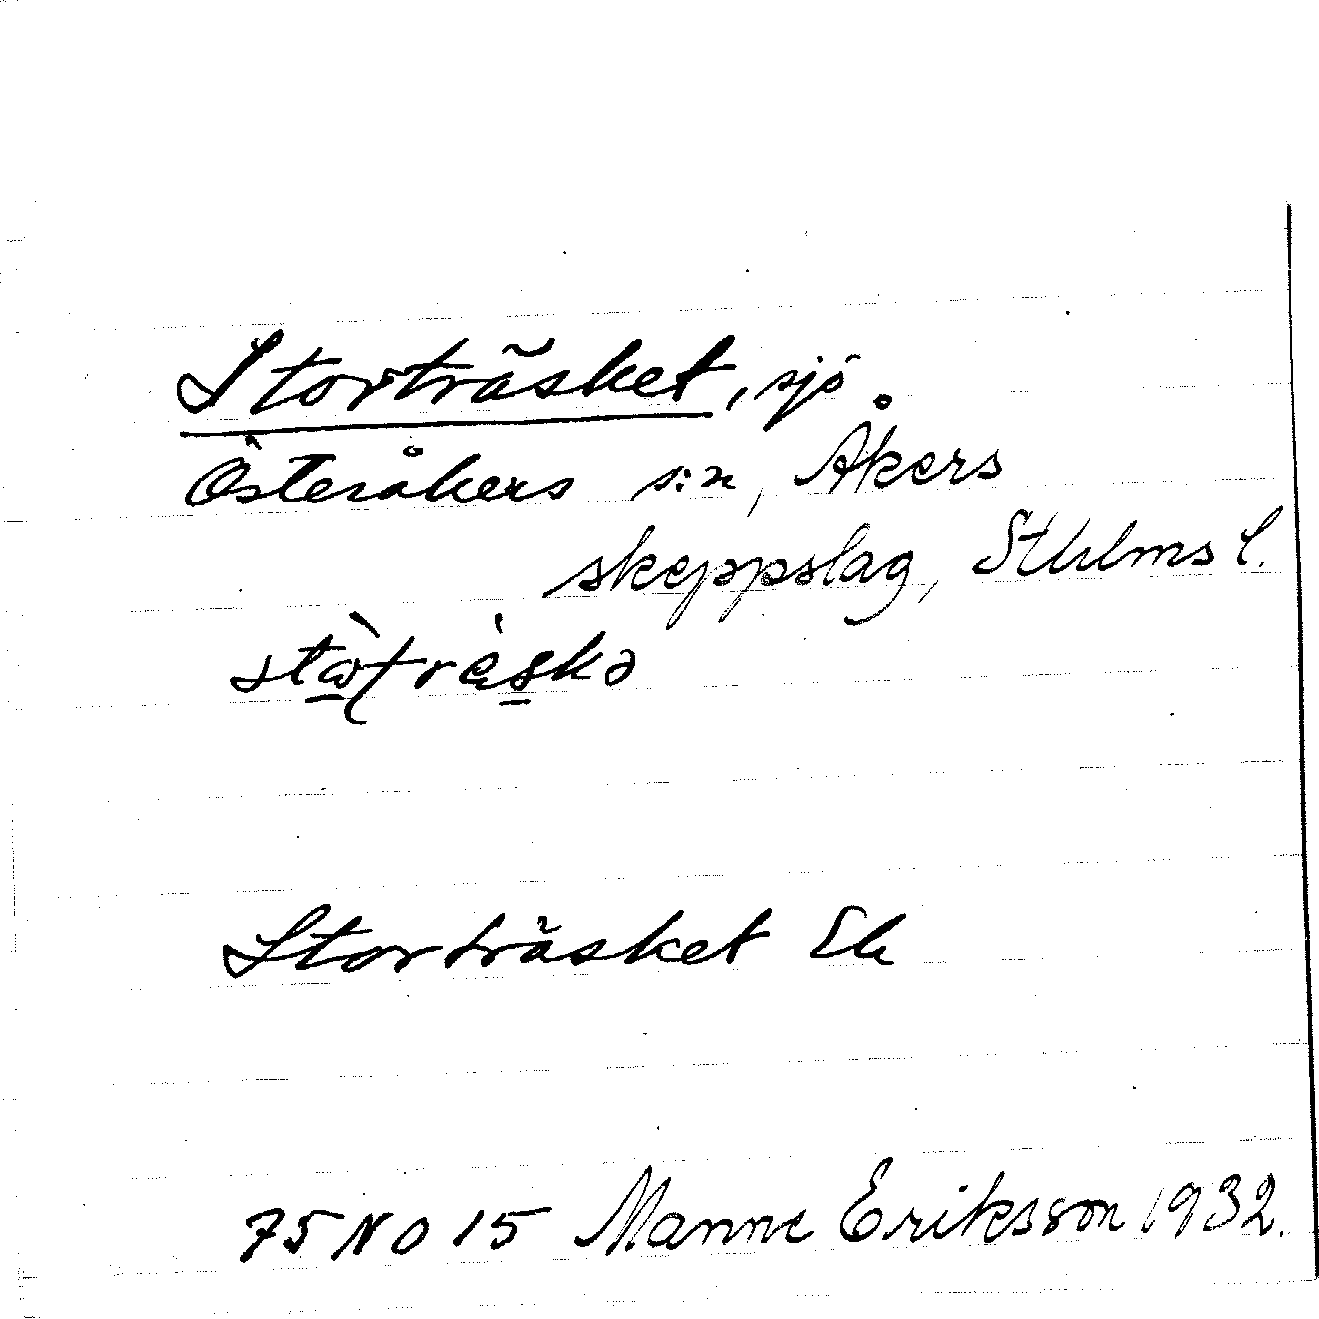 Storträsket, sjö
Österåkers s:n, Åkers
skeppslag, Sthlms l.
Storträsket Ek
75 NO 15 Manne Eriksson 1932.